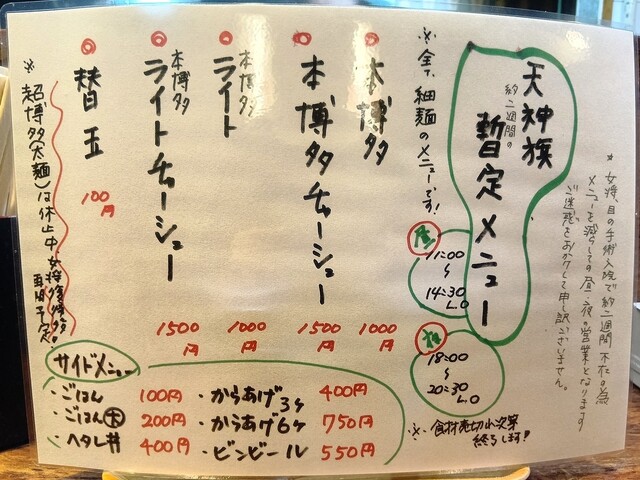 ★女将、目の手術入院で約二週間不在の為
メニューを減らしての昼、夜の営業となります
ご迷惑をおかけして申し訳ございません。
天神旗
約二週間の
暫定メニュー
※全て細麺のメニューです!
昼
11:00
〜
14:30
L.O
夜
18:00
〜
20:30
L.O
※食材売切れ次第
終了します!
本博多
1000
円
本博多チャーシュー
1500
円
本博多
ライト
1000
円
本博多
ライトチャーシュー
1500
円
替玉
100
円
※超博多(太麺)は休止中 女将復帰後
再開予定!
サイドメニュー
・ごはん 100円
・ごはん大 200円
・ヘタレ丼 400円
・からあげ3ヶ 400円
・からあげ6ヶ 750円
・ビンビール 550円